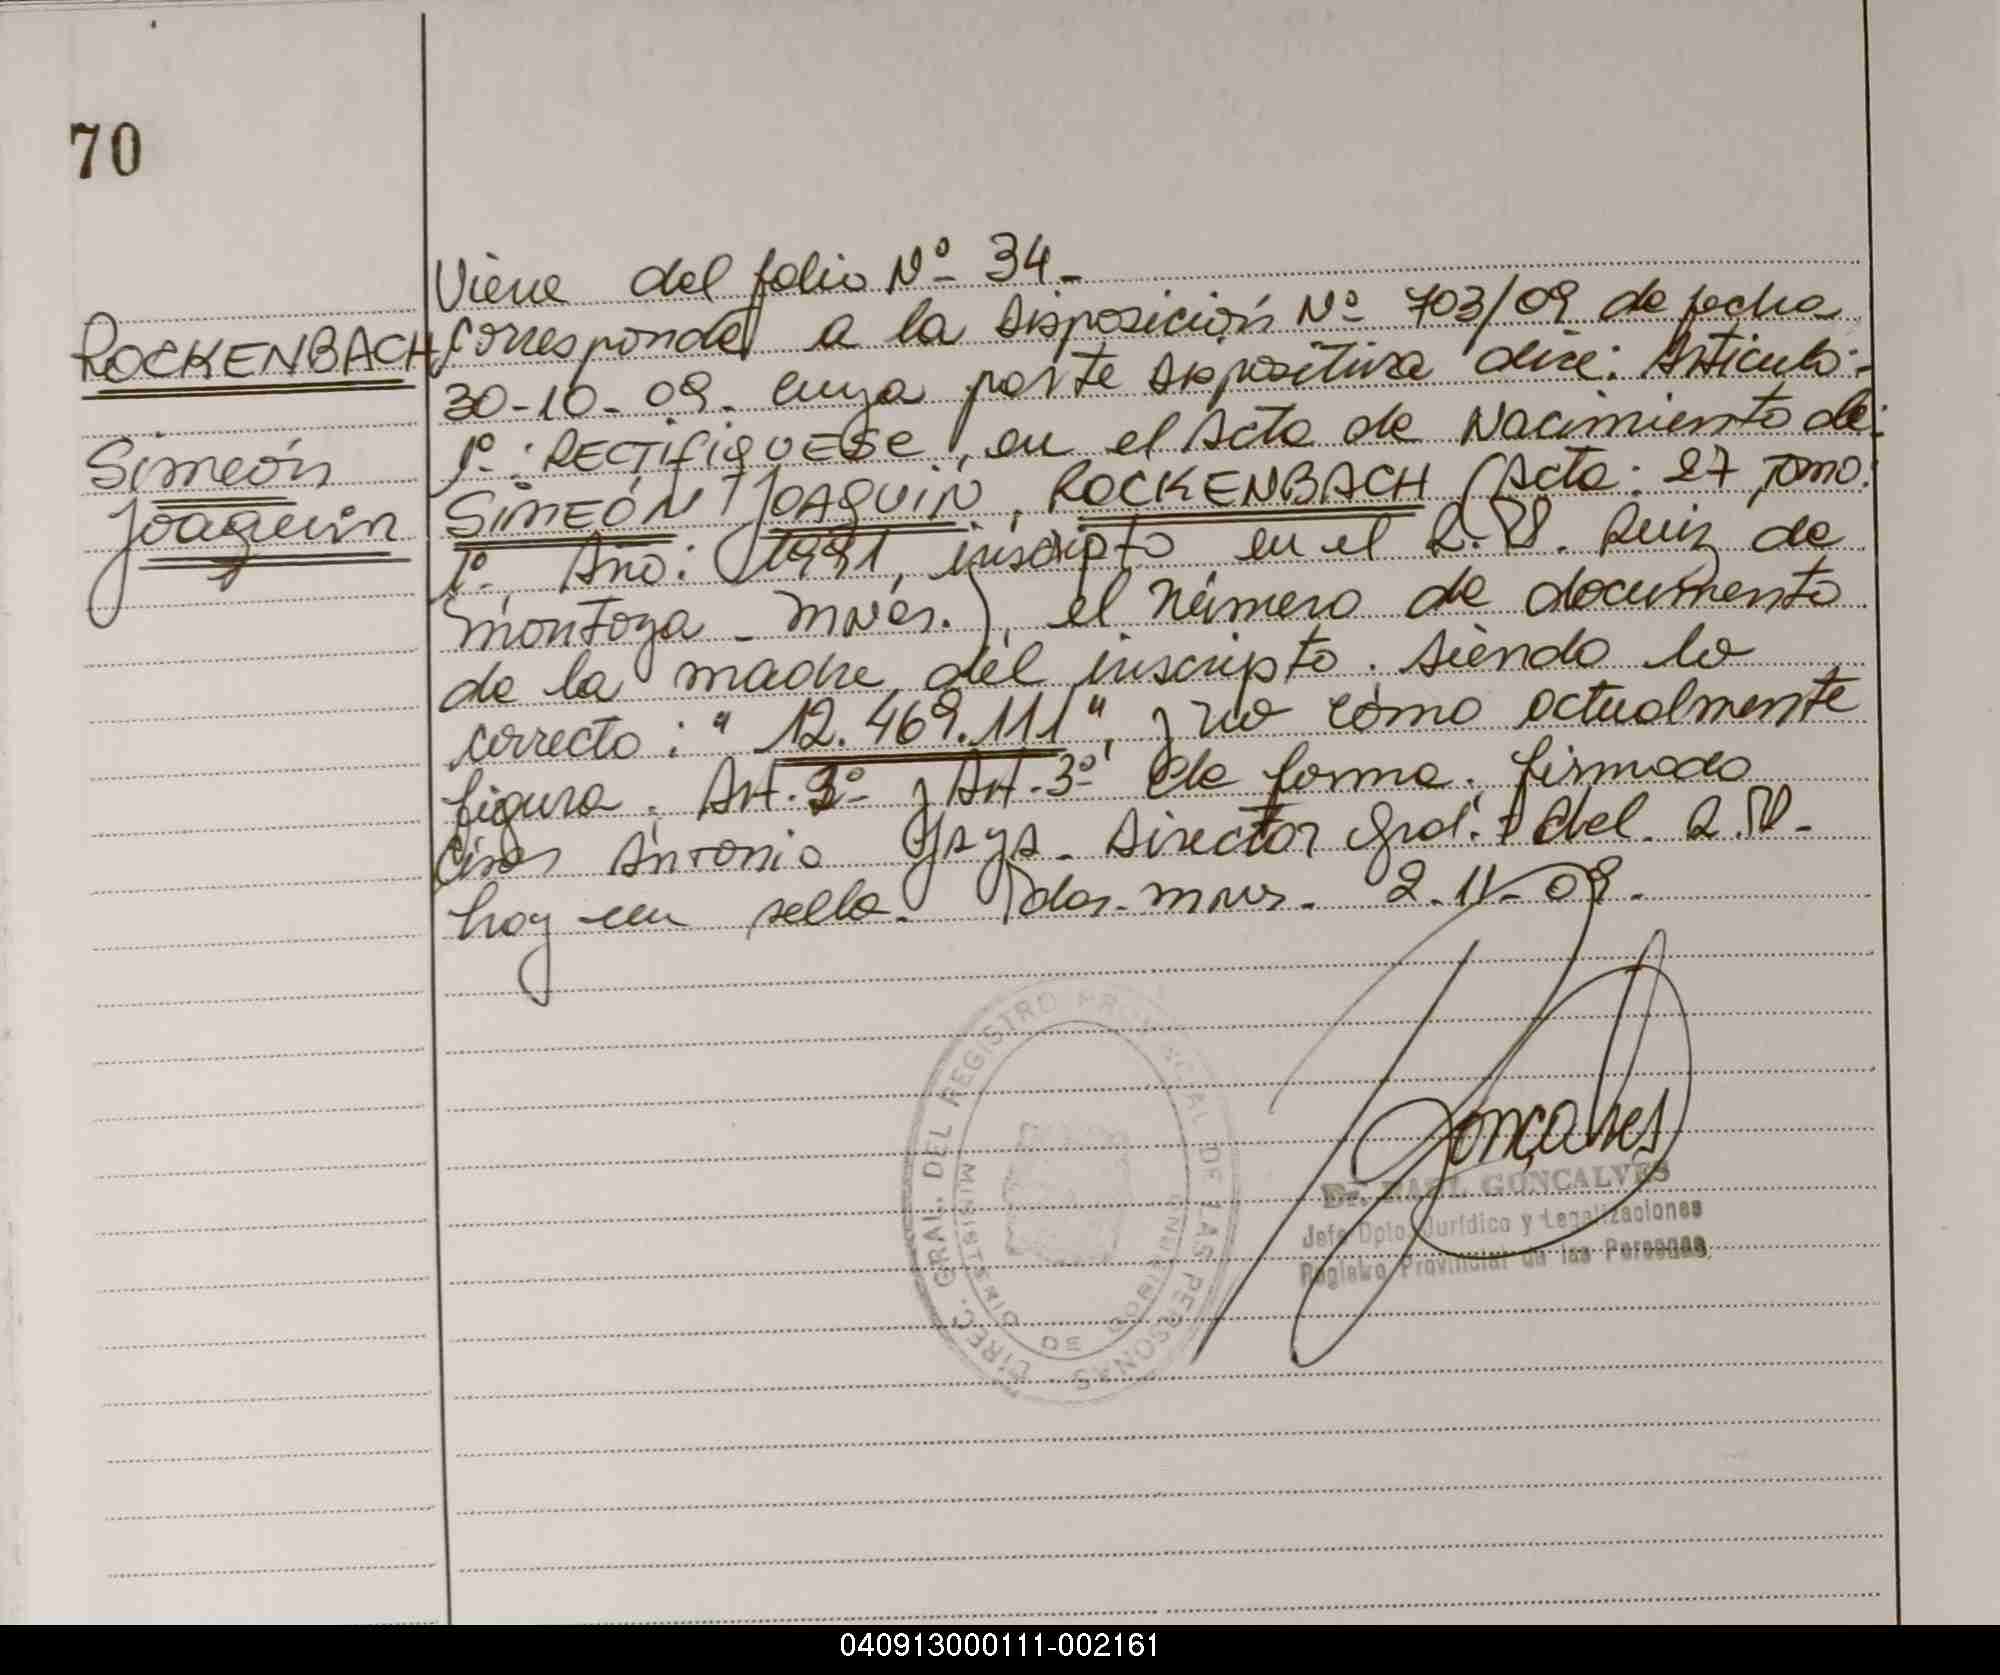 70
ROCKENBACH
Simeón
Joaquin
Viene del folio Nº 34-
Corresponde a la Disposición Nº 703/09 de fecha
30-10-09- cuya parte Dispositiva dice: Articulo-
1º: RECTIFIQUESE, en el Acta de Nacimiento de:
SIMEÓN JOAQUIN ROCKENBACH (Acta: 27 Tomo:
1º- Año: 1991, inscripto en el R.P. Ruiz de
Montoya - Mnes.), el número de documento
de la madre del inscripto. siendo lo
correcto: "12.469.111", y no como actualmente
figura. Art. 2º y Art. 3º de forma. firmado
Antonio - Director Gral. del R.P.-
hay un sello. Pdas. Mnes. 2-11-09-
Gonçalves
Dr. RAUL GONCALVES
Jefe Dpto. Jurídico y Legalizaciones
Registro Provincial de las Personas
DIREC. GRAL. DEL REGISTRO PROVINCIAL DE LAS PERSONAS
MINISTERIO DE GOBIERNO
040913000111-002161